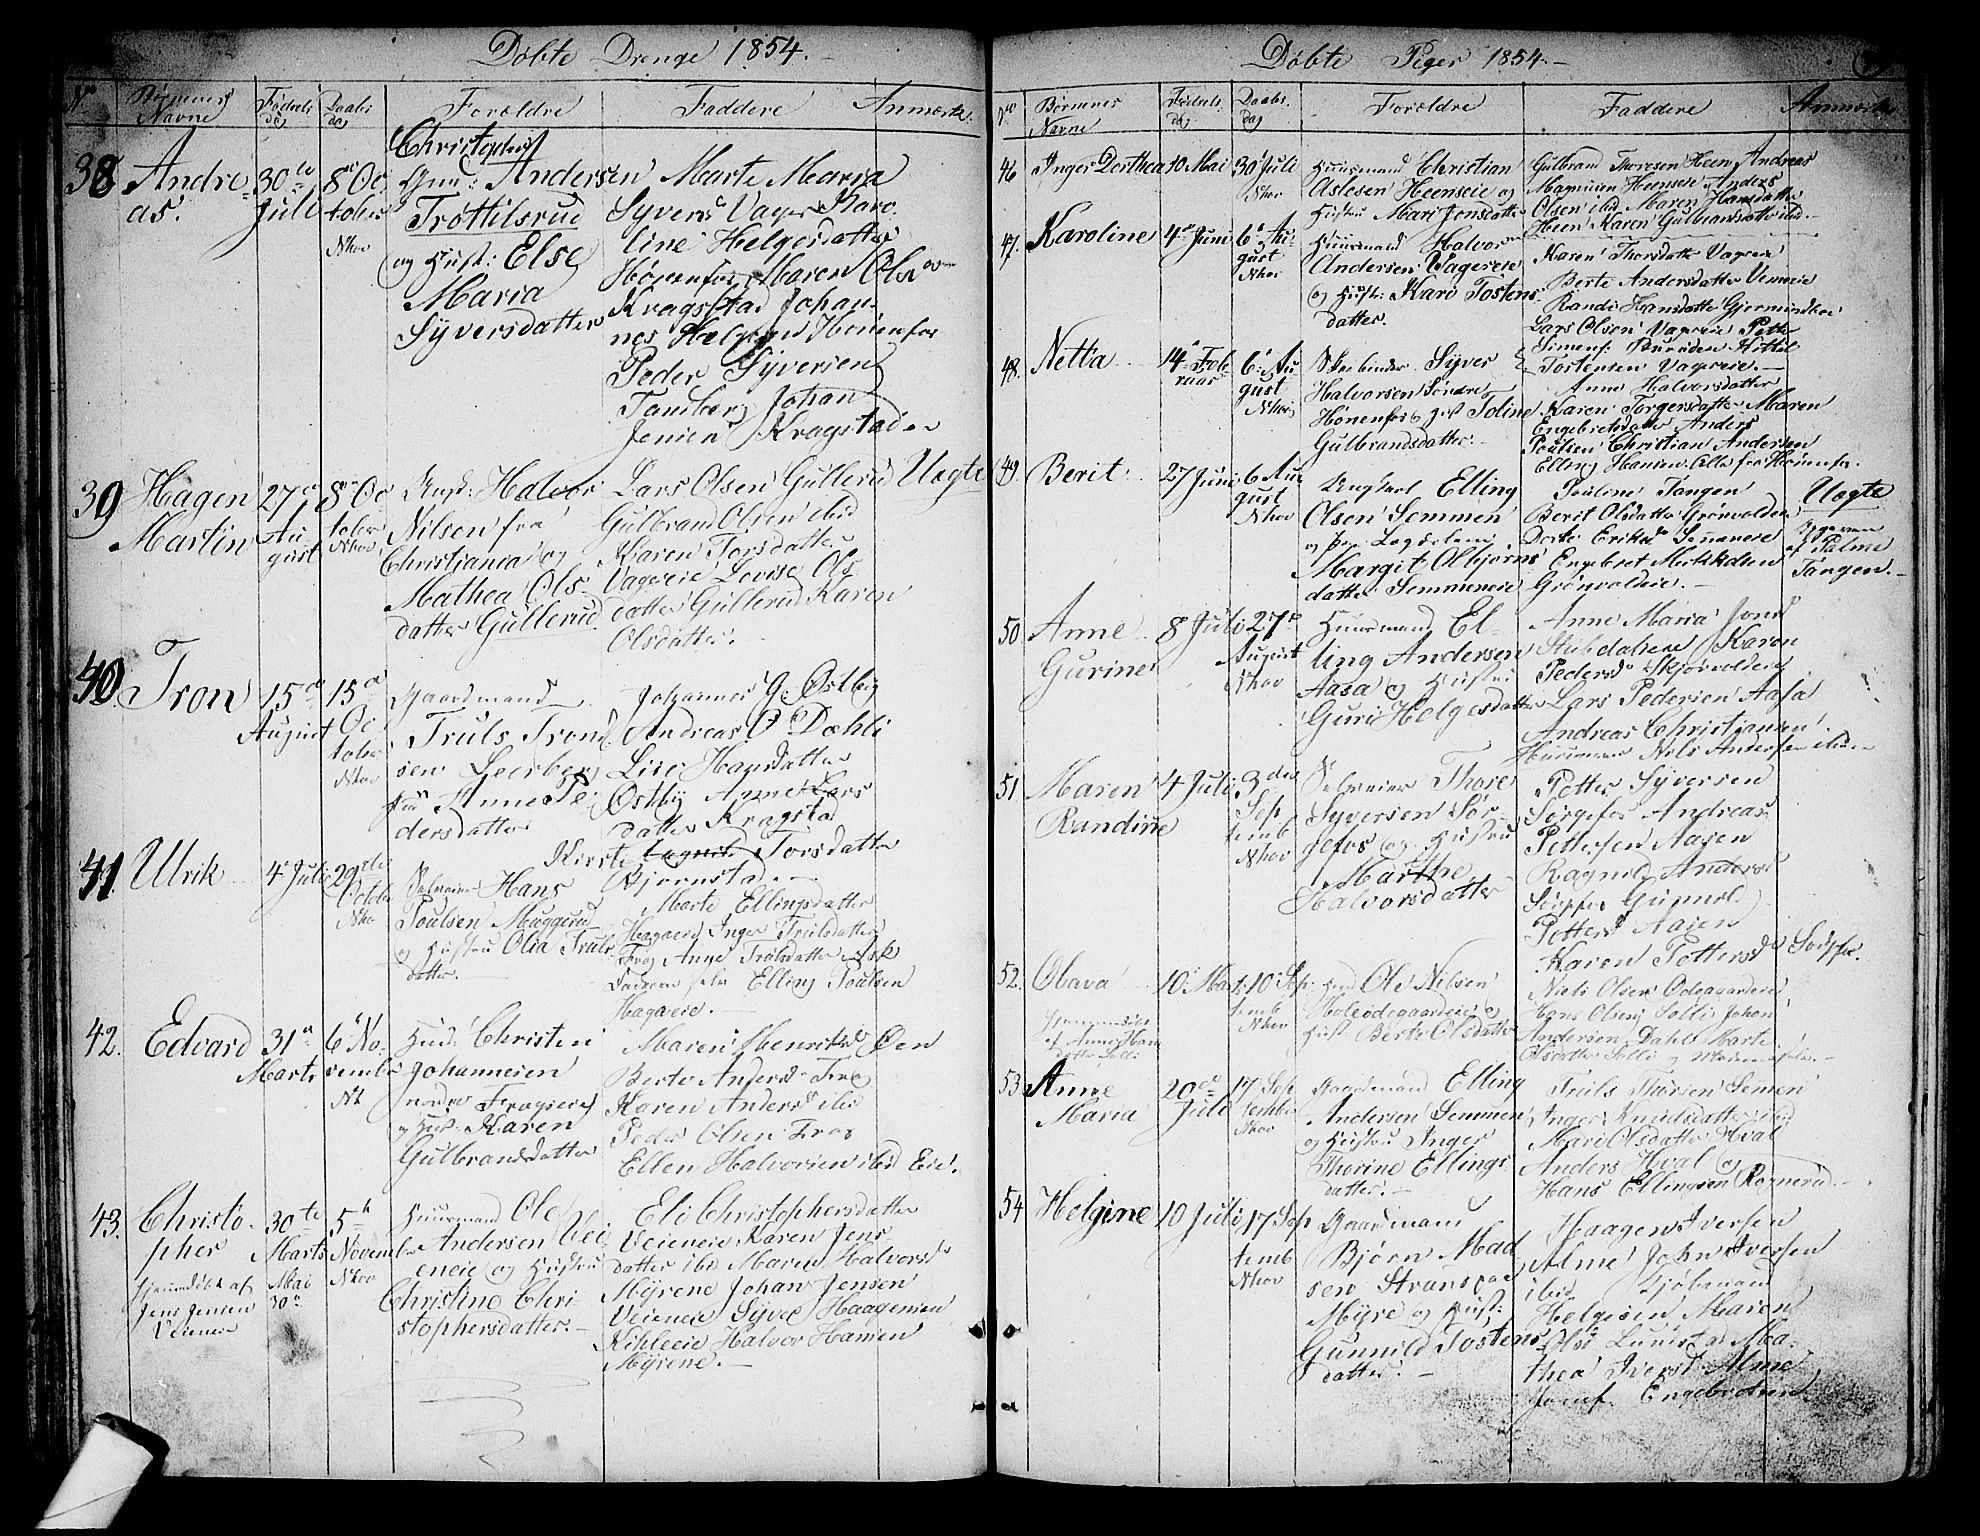 Døbte Drenge 1854.
No Børnenes Navne Fødsels dag Daabs dag Forældre Faddere Anmærk.
38 Andreas. 30te Juli 8de October Nhov
Christopher
Andersen
Trøttilsrud
og Hust: Else
Maria
Syversdatter
Marte Maria
Syversd Vager Karo-
line Helgesdatter
Hønenfos Maren Olsd
Kragstad Johan-
nes Helgesen Hønenfos
Peder Syversen
Tamberg Johan
Jensen Kragstad
39 Hagen Martin 27de August 8de October Nhov
Ungk: Halvor
Nilsen fra
Christiania og
Mathea Ols
datter Gullerud
Lars Olsen Gullerud
Gulbrand Olsen ibid
Karen Torsdatter
Vagereie Lovise Ols
datter Gullerud Karen
Olsdatter.
Uægte
40. Tron 15de August 15de October Nhov
Gaardmand
Truls Trond
sen Leerberg
Anne Pe
dersdatter
Johannes G: Østby
Andreas O Dæhli
Lise Hansdatter
Østby Anne Lars
datter Kragstad
41. Ulrik 4de Juli 29de October Nhov
Selveier Hans
Poulsen Muggerud
og Hustru Olia Truls
datter.
Kirsti Torsdatter
Bjørnstad.
Marte Ellingsdatter
Hagaeie Inger Trulsdatter
Frog Anne Trulsdatter Ask
Faderen selv Elling Poulsen
Hagaeie.
42. Edvard 31te Marts 6te November Nh
Christen
Johannesen
Frogseie
og Hust: Karen
Gulbrandsdatter
Maren Henriksd Øen
Berte Andersd Frog
Karen Andersd ibid
Peder Olsen Frog
Ellen Halvorsen ibid Eie.
43. Christopher 30te Marts 5te November Nhov
Hjemmedøbt af
Jens Jensen
Veieneie
Mai
30te
Huusmand Ole
Andersen Vei
eneie og Hustru
Christine Chri
stophersdatter.
Eli Christophersdatter
Veieneie Karen Jens
datter ibid Maren Halvorsd
Myrene Johan Jensen
Veieneie Syver Haagensen
Kihleeie Halvor Hansen
Myrene.
Døbte Piger 1854.
No Børnenes Navne Fødsels dag Daabs dag Forældre Faddere Anmærk
46 Inger Dorthea 10 Mai 30te Juli Nhov
Huusmand Christian
Aslesen Heenseie og
Hustru Mari Jonsdatter
Gulbrand Thoresen Heen Andreas
Magnusen Heenseie Anders
Olsen ibid Maren Hansdatter
Heen Karen Gulbrandsdatter ibid.
47. Karoline 4de Juni 6te August Nhov
Huusmand Halvor
Andersen Vagereie
og Hust: Kari Tostens
datter.
Karen Thorsdatter Vagereie
Berte Andersdatter Vemeeie
Randi Hansdatter Gjermundboe
Lars Olsen Vagereie Petter
Simens: Buruden Kittil
Tostensen Vagereie.
48. Netta 14de Februar 6te August Nhov
Syver
Halvorsen Søndre
Hønenfos og Hust Toline
Gulbrandsdatter.
Anne Halvorsdatter
Karen Torgersdatter Maren
Engebretsdatter Anders
Poulsen Christian Andersen
Elling Hansen Alle fra Hønenfos.
49. Berit 27 Juni 6 August Nhov
Ungkarl Elling
Olsen Semmen
og Pige
Margit Olbjørns
datter Semmeneie
Pauline Tangen
Berit Olsdatter Grønvolden
Dorte Eriksd Semmeneie
Engebret Mikkelsen
Grønvoldeie.
Uægte
af Palme
Tangen.
50. Anne Gurine 8 Juli 27de August Nhov
Huusmand El-
ling Andersen
Aasa og Hustru
Guri Helgesdatter
Anne Maria Jonsd
Stubdahleie Karen
Pedersd Skjørvolden
Lars Pedersen Aasa
Andreas Christiansen
Nils Andersen ibid
51 Maren Randine 4 Juli 3die September Nhov
Selveier Thore
Syversen Sør-
gefos og Hustru
Marthe
Halvorsdatter
Petter Syversen
Sørgefos Andreas
Pettersen Aasen
Ragnild Andersd
Sørgefos Gunnild
Pettersd Aasen
Karen Pettersd Sørgefos.
52. Olava 10 Marts 10 September Nhov
Hjemmedøbt
af Anne Hans
datter Solli
Ole Nilsen
Holeødegaardeie og
Hust Berte Olsdatter
Niels Olsen Ødegaarden
Hans Olsen Solli Johan
Andersen Dahls Marte
Olsdatter Solli og Moderen selv.
53. Anne Maria 20de Juli 17 September Nhov
Gaardmand Elling
Andersen Semmen
og Hustru Inger
Thorine Ellings
datter.
Truls Thorsen Semen
Inger Knudsdatter ibid
Mari Olsdatter Hval
Anders Hval og
Hans Ellingsen Rognerud.
54 Helgine 10 Juli 17 September Nhov
Gaardmand
Bjørn Mad
sen Stranger
Myre og Hust:
Gunnild Tostens
datter.
Haagen Iversen
Alme John Iversen
ibid Gjøbmand
Helgesen Maren
Olsd Lunestad Ma-
thea Iversd Alme
Josef Engebretsen